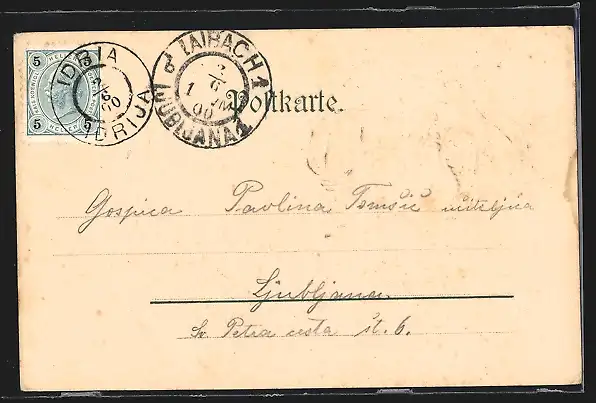 5 5
5 5
IDRIA
2/6
00
IDRIJA
LAIBACH 1
2/6
1 00
LJUBLJANA 1
Postkarte.
Gospica Pavlina Tomšič učiteljica
Ljubljana
Sv Petra cesta št. 6.